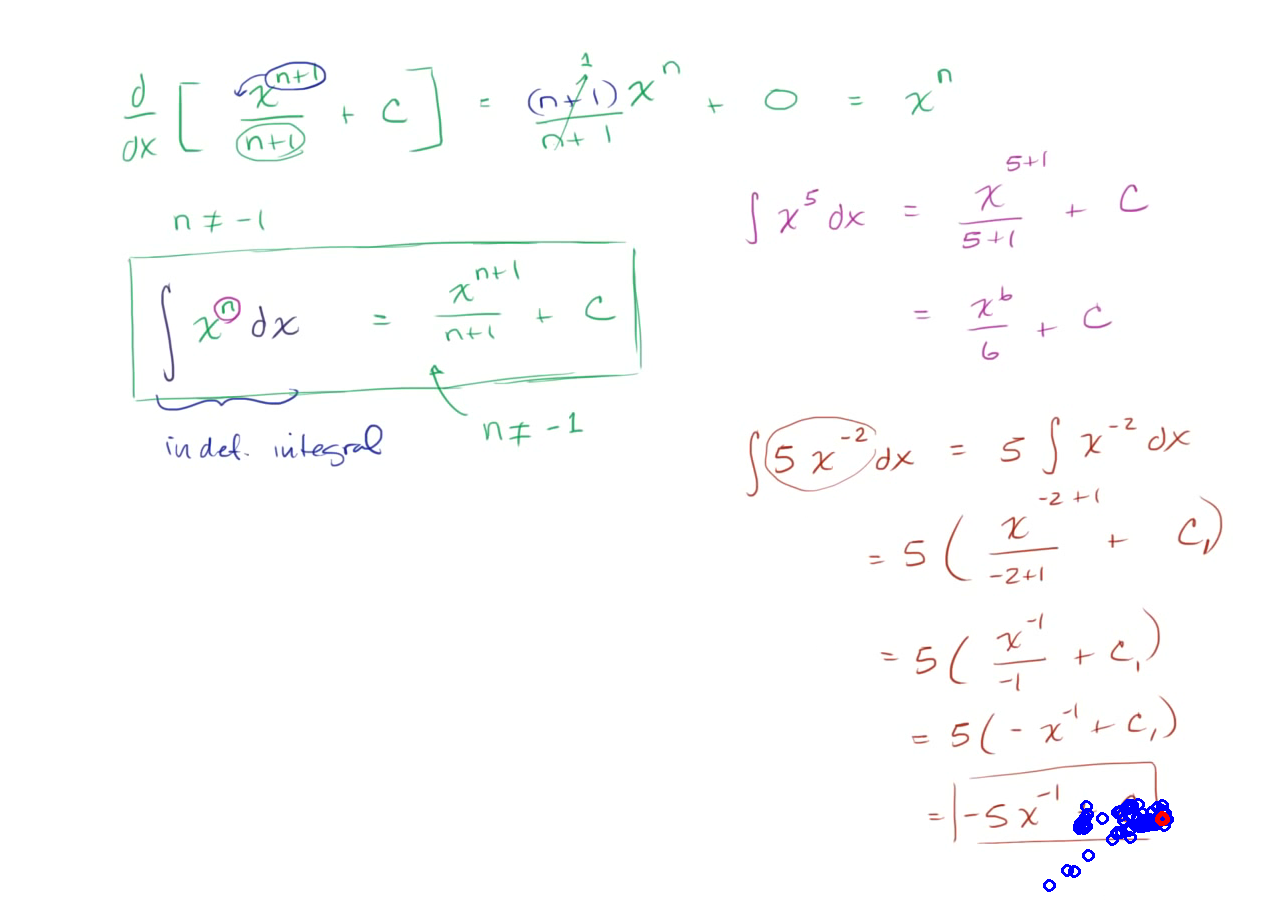 d/dx [ x^(n+1)/(n+1) + C ] = (n+1)x^n/(n+1) + 0 = x^n
1
n ≠ -1
∫ x^n dx = x^(n+1)/(n+1) + C
n ≠ -1
indef. integral
∫ x^5 dx = x^(5+1)/(5+1) + C
= x^6/6 + C
∫ 5x^(-2) dx = 5 ∫ x^(-2) dx
= 5 ( x^(-2+1)/(-2+1) + C₁)
= 5 ( x^(-1)/(-1) + C₁)
= 5 ( - x^(-1) + C₁)
= -5x^(-1)